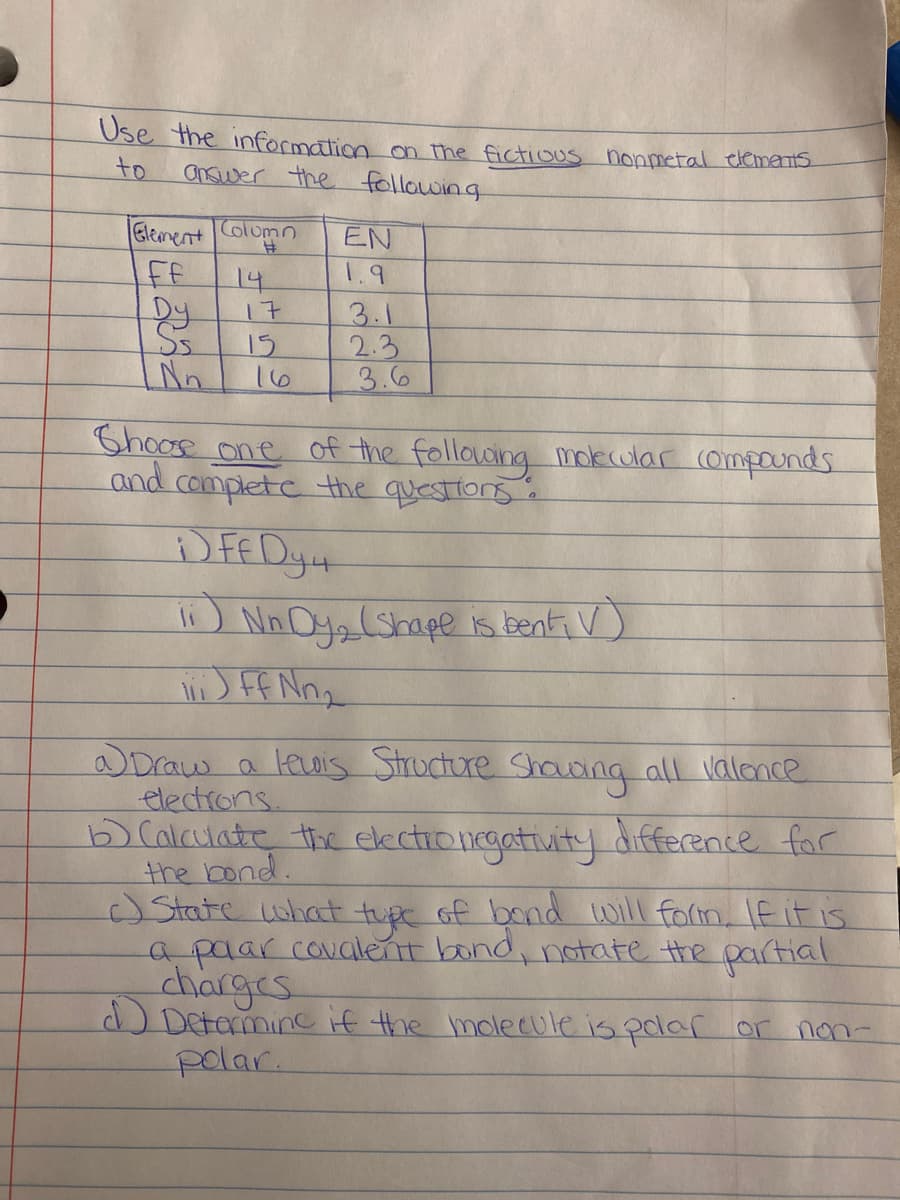 Use the information on the fictious nonmetal elements
to answer the following
Element Column # EN
Ff 14 1.9
Dy 17 3.1
Ss 15 2.3
Nn 16 3.6
Choose one of the following molecular compounds
and complete the questions:
i) FfDy4
ii) NnDy2 (shape is bent; V)
iii) FfNn2
a) Draw a lewis Structure Showing all valence
electrons.
b) Calculate the electronegativity difference for
the bond.
c) State what type of bond will form. If it is
a polar covalent bond, notate the partial
charges
d) Determine if the molecule is polar or non-
polar.